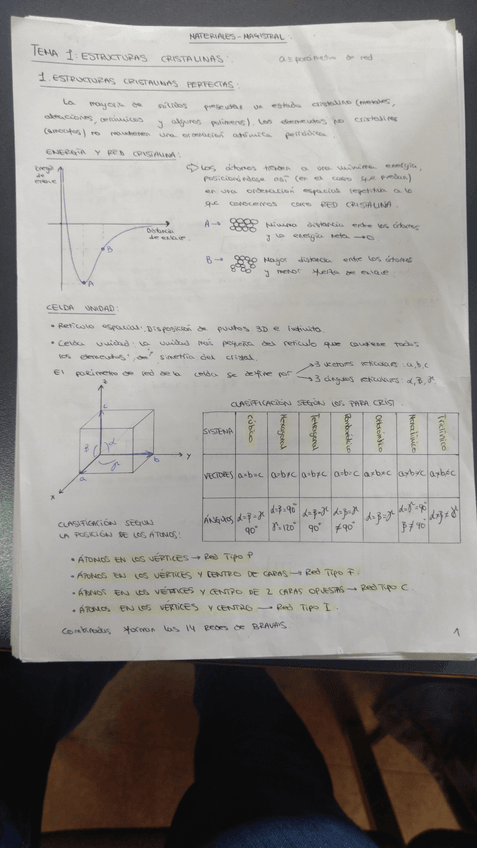 MATERIALES - MAGISTRAL
TEMA 1: ESTRUCTURAS CRISTALINAS.
a: parámetro de red
1. ESTRUCTURAS CRISTALINAS PERFECTAS:
La mayoría de sólidos presentan un estado cristalino (metales,
aleaciones, cerámicas y algunos polímeros). Los elementos no cristalinos
(amorfos) no mantienen una ordenación atómica periódica.
ENERGÍA Y RED CRISTALINA:
Energía
de
enlace
Distancia
de enlace
A
B
Los átomos tienden a una mínima energía,
posicionándose así (en el caso q.c. puedan)
en una ordenación espacial repetitiva a lo
q.c. conocemos como RED CRISTALINA.
A → Mínima distancia entre los átomos
y la energía neta → 0
B → Mayor distancia entre los átomos
y menor fuerza de enlace.
CELDA UNIDAD:
• Retículo espacial: Disposición de puntos 3D e infinita.
• Celda unidad: La unidad más pequeña del retículo que contiene todos
los elementos de simetría del cristal.
El parámetro de red de la celda se define por → 3 vectores reticulares: a, b, c
→ 3 ángulos reticulares: α, β, γ
z
c
β α
γ
a b
y
x
CLASIFICACIÓN SEGÚN LOS PARA CRIST.
SISTEMA Cúbico Hexagonal Tetragonal Romboédrico Ortorrómbico Monoclínico Triclínico
VECTORES a=b=c a=b≠c a=b≠c a=b=c a≠b≠c a≠b≠c a≠b≠c
ÁNGULOS α=β=γ 90° α=β=90° γ=120° α=β=γ 90° α=β=γ ≠90° α=β=γ α=γ=90° β≠90° α≠β≠γ
CLASIFICACIÓN SEGÚN
LA POSICIÓN DE LOS ÁTOMOS:
• ÁTOMOS EN LOS VÉRTICES → Red Tipo P
• ÁTOMOS EN LOS VÉRTICES Y CENTRO DE CARAS → Red Tipo F.
• ÁTOMOS EN LOS VÉRTICES Y CENTRO DE 2 CARAS OPUESTAS → Red Tipo C
• ÁTOMOS EN LOS VÉRTICES Y CENTRO → Red Tipo I.
Combinados forman las 14 Redes de BRAVAIS.
1